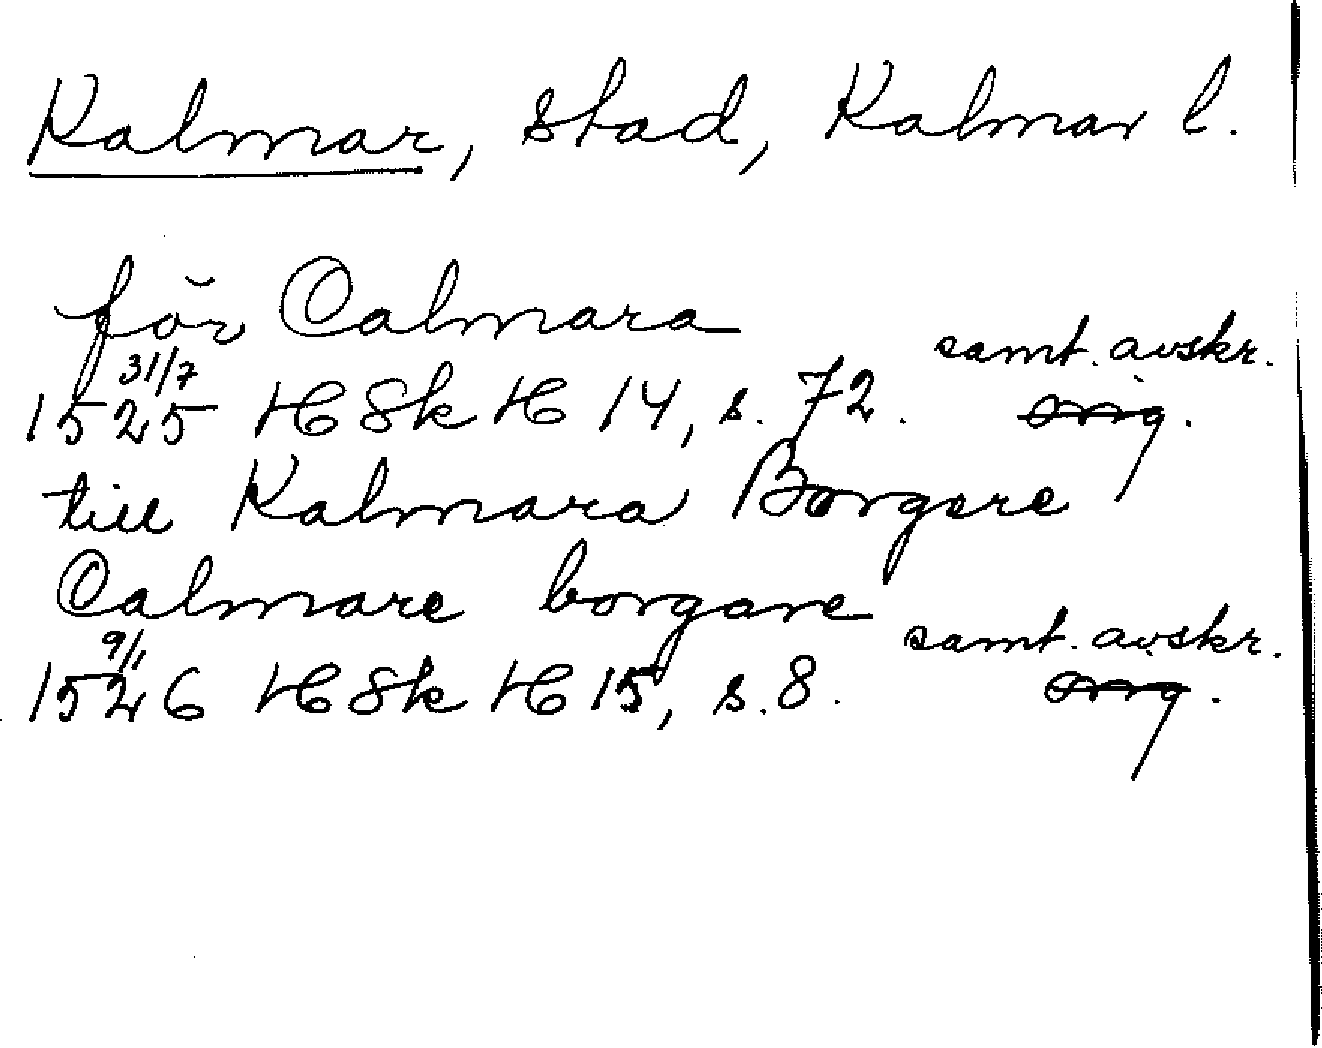 Kalmar, stad, Kalmar l.
för Calmara
31/7 samt. avskr.
1525 HSkH 14, s. 72. orig.
till Kalmara Borgere
Calmare borgare
9/1 samt. avskr.
1526 HSkH 15, s. 8. orig.